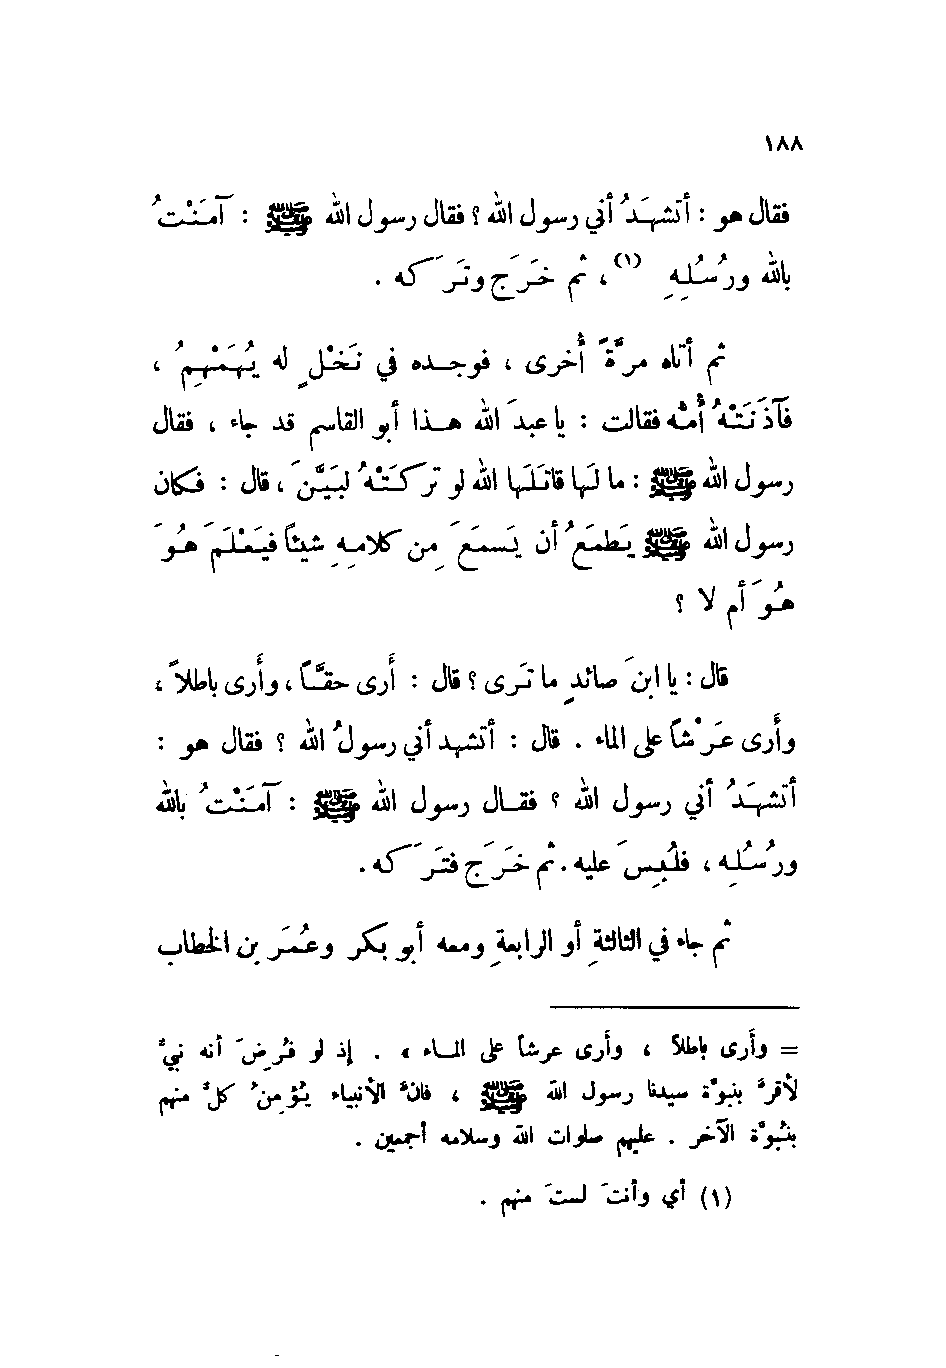 ١٨٨
فقال هو : أتشهَدُ أني رسول الله ؟ فقال رسول الله ﷺ : آمَنْتُ
بالله ورُسُلِهِ (١) ، ثم خَرَج وتَرَكه .
ثم أتاه مرَّةً أُخرى ، فوجده في نَخْلٍ له يُهَمْهِمُ ،
فآذَنَتْهُ أُمُّه فقالت : يا عبدَ الله هذا أبو القاسم قد جاء ، فقال
رسول الله ﷺ : ما لَها قاتَلَها الله لو تركَتْهُ لبَيَّنَ ، قال : فكان
رسول الله ﷺ يَطمَعُ أن يَسمَعَ مِن كلامِهِ شيئاً فيَعْلَمَ هُوَ
هُوَ أم لا ؟
قال : يا ابنَ صائدٍ ما تَرى ؟ قال : أَرى حقَّاً ، وأَرى باطلاً ،
وأَرى عَرْشاً على الماء . قال : أتشهد أني رسولُ الله ؟ فقال هو :
أتشهَدُ أني رسول الله ؟ فقال رسول الله ﷺ : آمَنْتُ بالله
ورُسُلِه ، فلُبِسَ عليه . ثم خَرَج فتَرَكه .
ثم جاء في الثالثةِ أو الرابعةِ ومعه أبو بكر وعُمَر بن الخطاب
= وأَرى باطلاً ، وأرى عرشاً على الماء » . إذ لو فُرِضَ أنه نبيٌّ
لأقرَّ بنبوَّة سيدنا رسول الله ﷺ ، فانَّ الأنبياء يُؤمِنُ كلٌّ منهم
بنُبوَّة الآخر . عليهم صلوات الله وسلامه أجمعين .
(١) أي وأنتَ لستَ منهم .